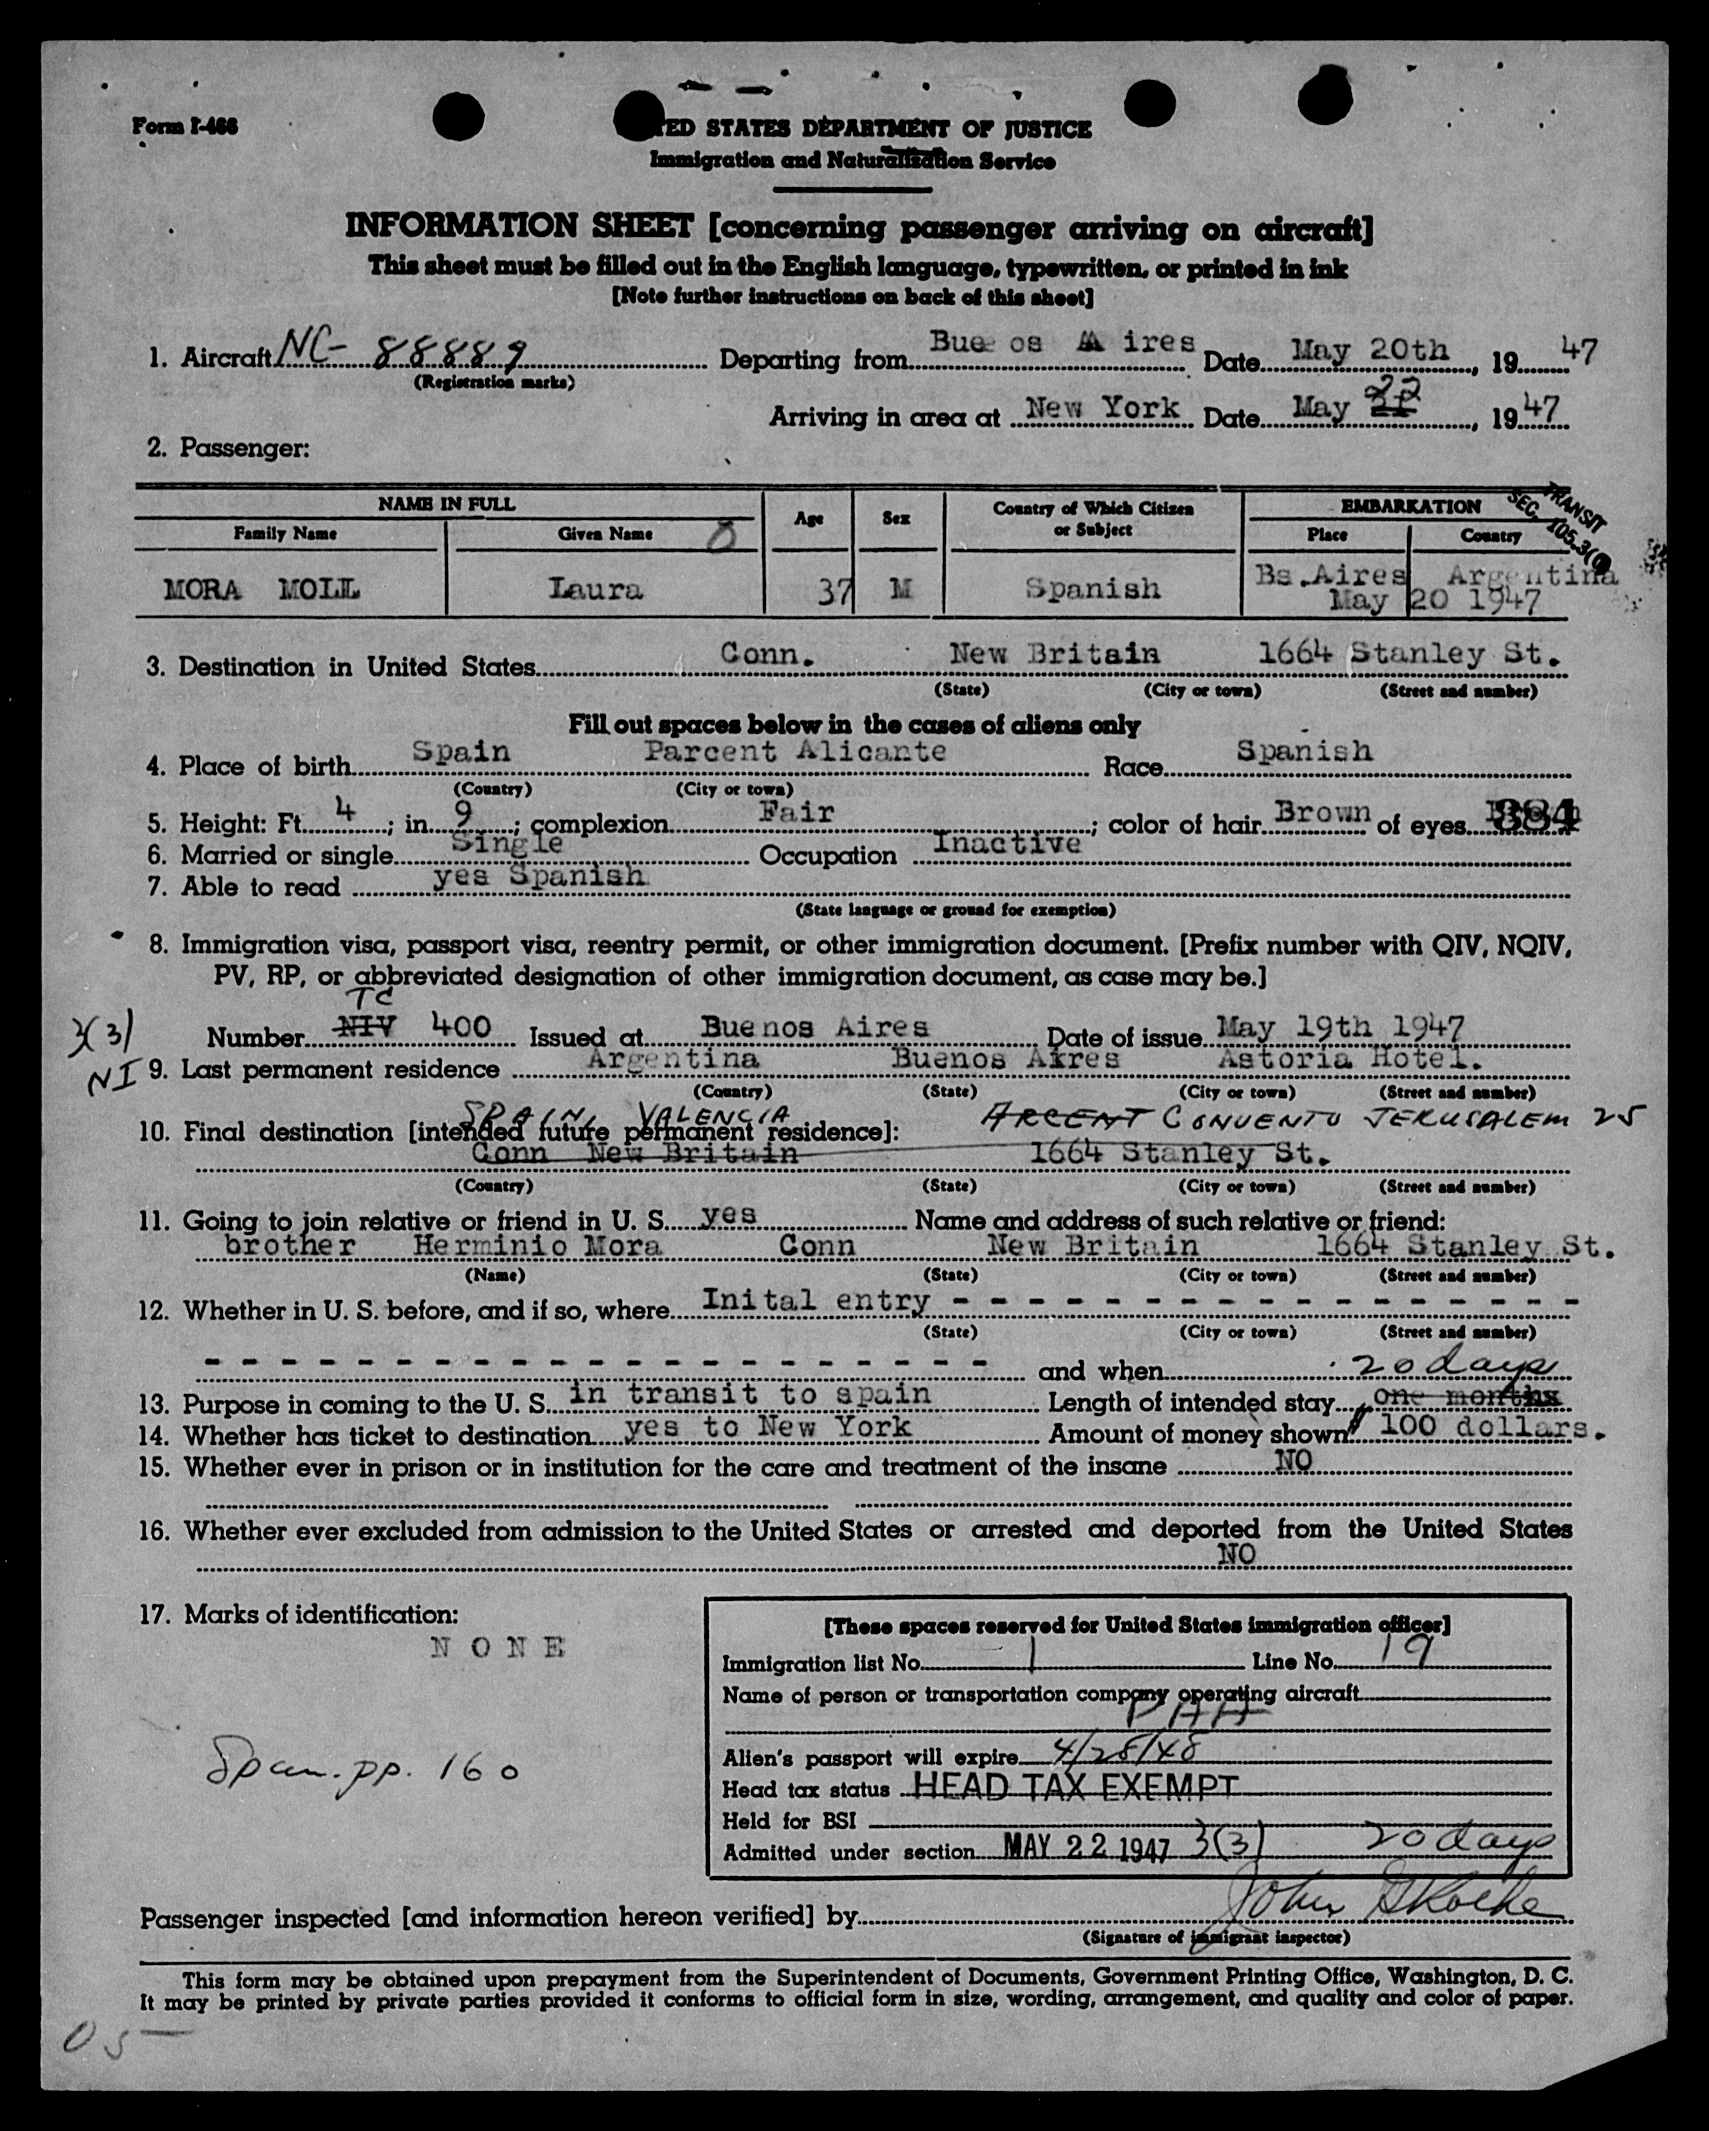 Form I-466
TED STATES DEPARTMENT OF JUSTICE
Immigration and Naturalization Service
INFORMATION SHEET [concerning passenger arriving on aircraft]
This sheet must be filled out in the English language, typewritten, or printed in ink
[Note further instructions on back of this sheet]
1. Aircraft NC- 88889 Departing from Buenos Aires Date May 20th, 1947
(Registration marks)
Arriving in area at New York Date May 22, 1947
2. Passenger:
NAME IN FULL Age Sex Country of Which Citizen or Subject EMBARKATION
Family Name Given Name Place Country
TRANSIT
SEC. 105.3(
MORA MOLL Laura 37 M Spanish Bs.Aires Argentina
May 20 1947
3. Destination in United States Conn. New Britain 1664 Stanley St.
(State) (City or town) (Street and number)
Fill out spaces below in the cases of aliens only
4. Place of birth Spain Parcent Alicante Race Spanish
(Country) (City or town)
5. Height: Ft. 4; in. 9; complexion Fair; color of hair Brown of eyes 884
6. Married or single Single Occupation Inactive
7. Able to read yes Spanish
(State language or ground for exemption)
8. Immigration visa, passport visa, reentry permit, or other immigration document. [Prefix number with QIV, NQIV,
PV, RP, or abbreviated designation of other immigration document, as case may be.]
TC
3(3) Number NIV 400 Issued at Buenos Aires Date of issue May 19th 1947
NI 9. Last permanent residence Argentina Buenos Aires Astoria Hotel.
(Country) (State) (City or town) (Street and number)
SPAIN, VALENCIA CONVENTO JERUSALEM 25
10. Final destination [intended future permanent residence]:
Conn New Britain 1664 Stanley St.
(Country) (State) (City or town) (Street and number)
11. Going to join relative or friend in U. S. yes Name and address of such relative or friend:
brother Herminio Mora Conn New Britain 1664 Stanley St.
(Name) (State) (City or town) (Street and number)
12. Whether in U. S. before, and if so, where Inital entry - - - - - - - - - - - - - - - - -
(State) (City or town) (Street and number)
- - - - - - - - - - - - - - - - - - - - - and when 20 days
13. Purpose in coming to the U. S. in transit to spain Length of intended stay one months
14. Whether has ticket to destination yes to New York Amount of money shown $ 100 dollars.
15. Whether ever in prison or in institution for the care and treatment of the insane NO
16. Whether ever excluded from admission to the United States or arrested and deported from the United States
NO
17. Marks of identification:
NONE
Span. pp. 160
[These spaces reserved for United States immigration officer]
Immigration list No. 1 Line No. 19
Name of person or transportation company operating aircraft
PAA
Alien's passport will expire 4/28/48
Head tax status HEAD TAX EXEMPT
Held for BSI
Admitted under section MAY 22 1947 3(3) 20 days
Passenger inspected [and information hereon verified] by John
(Signature of immigrant inspector)
This form may be obtained upon prepayment from the Superintendent of Documents, Government Printing Office, Washington, D. C.
It may be printed by private parties provided it conforms to official form in size, wording, arrangement, and quality and color of paper.
05